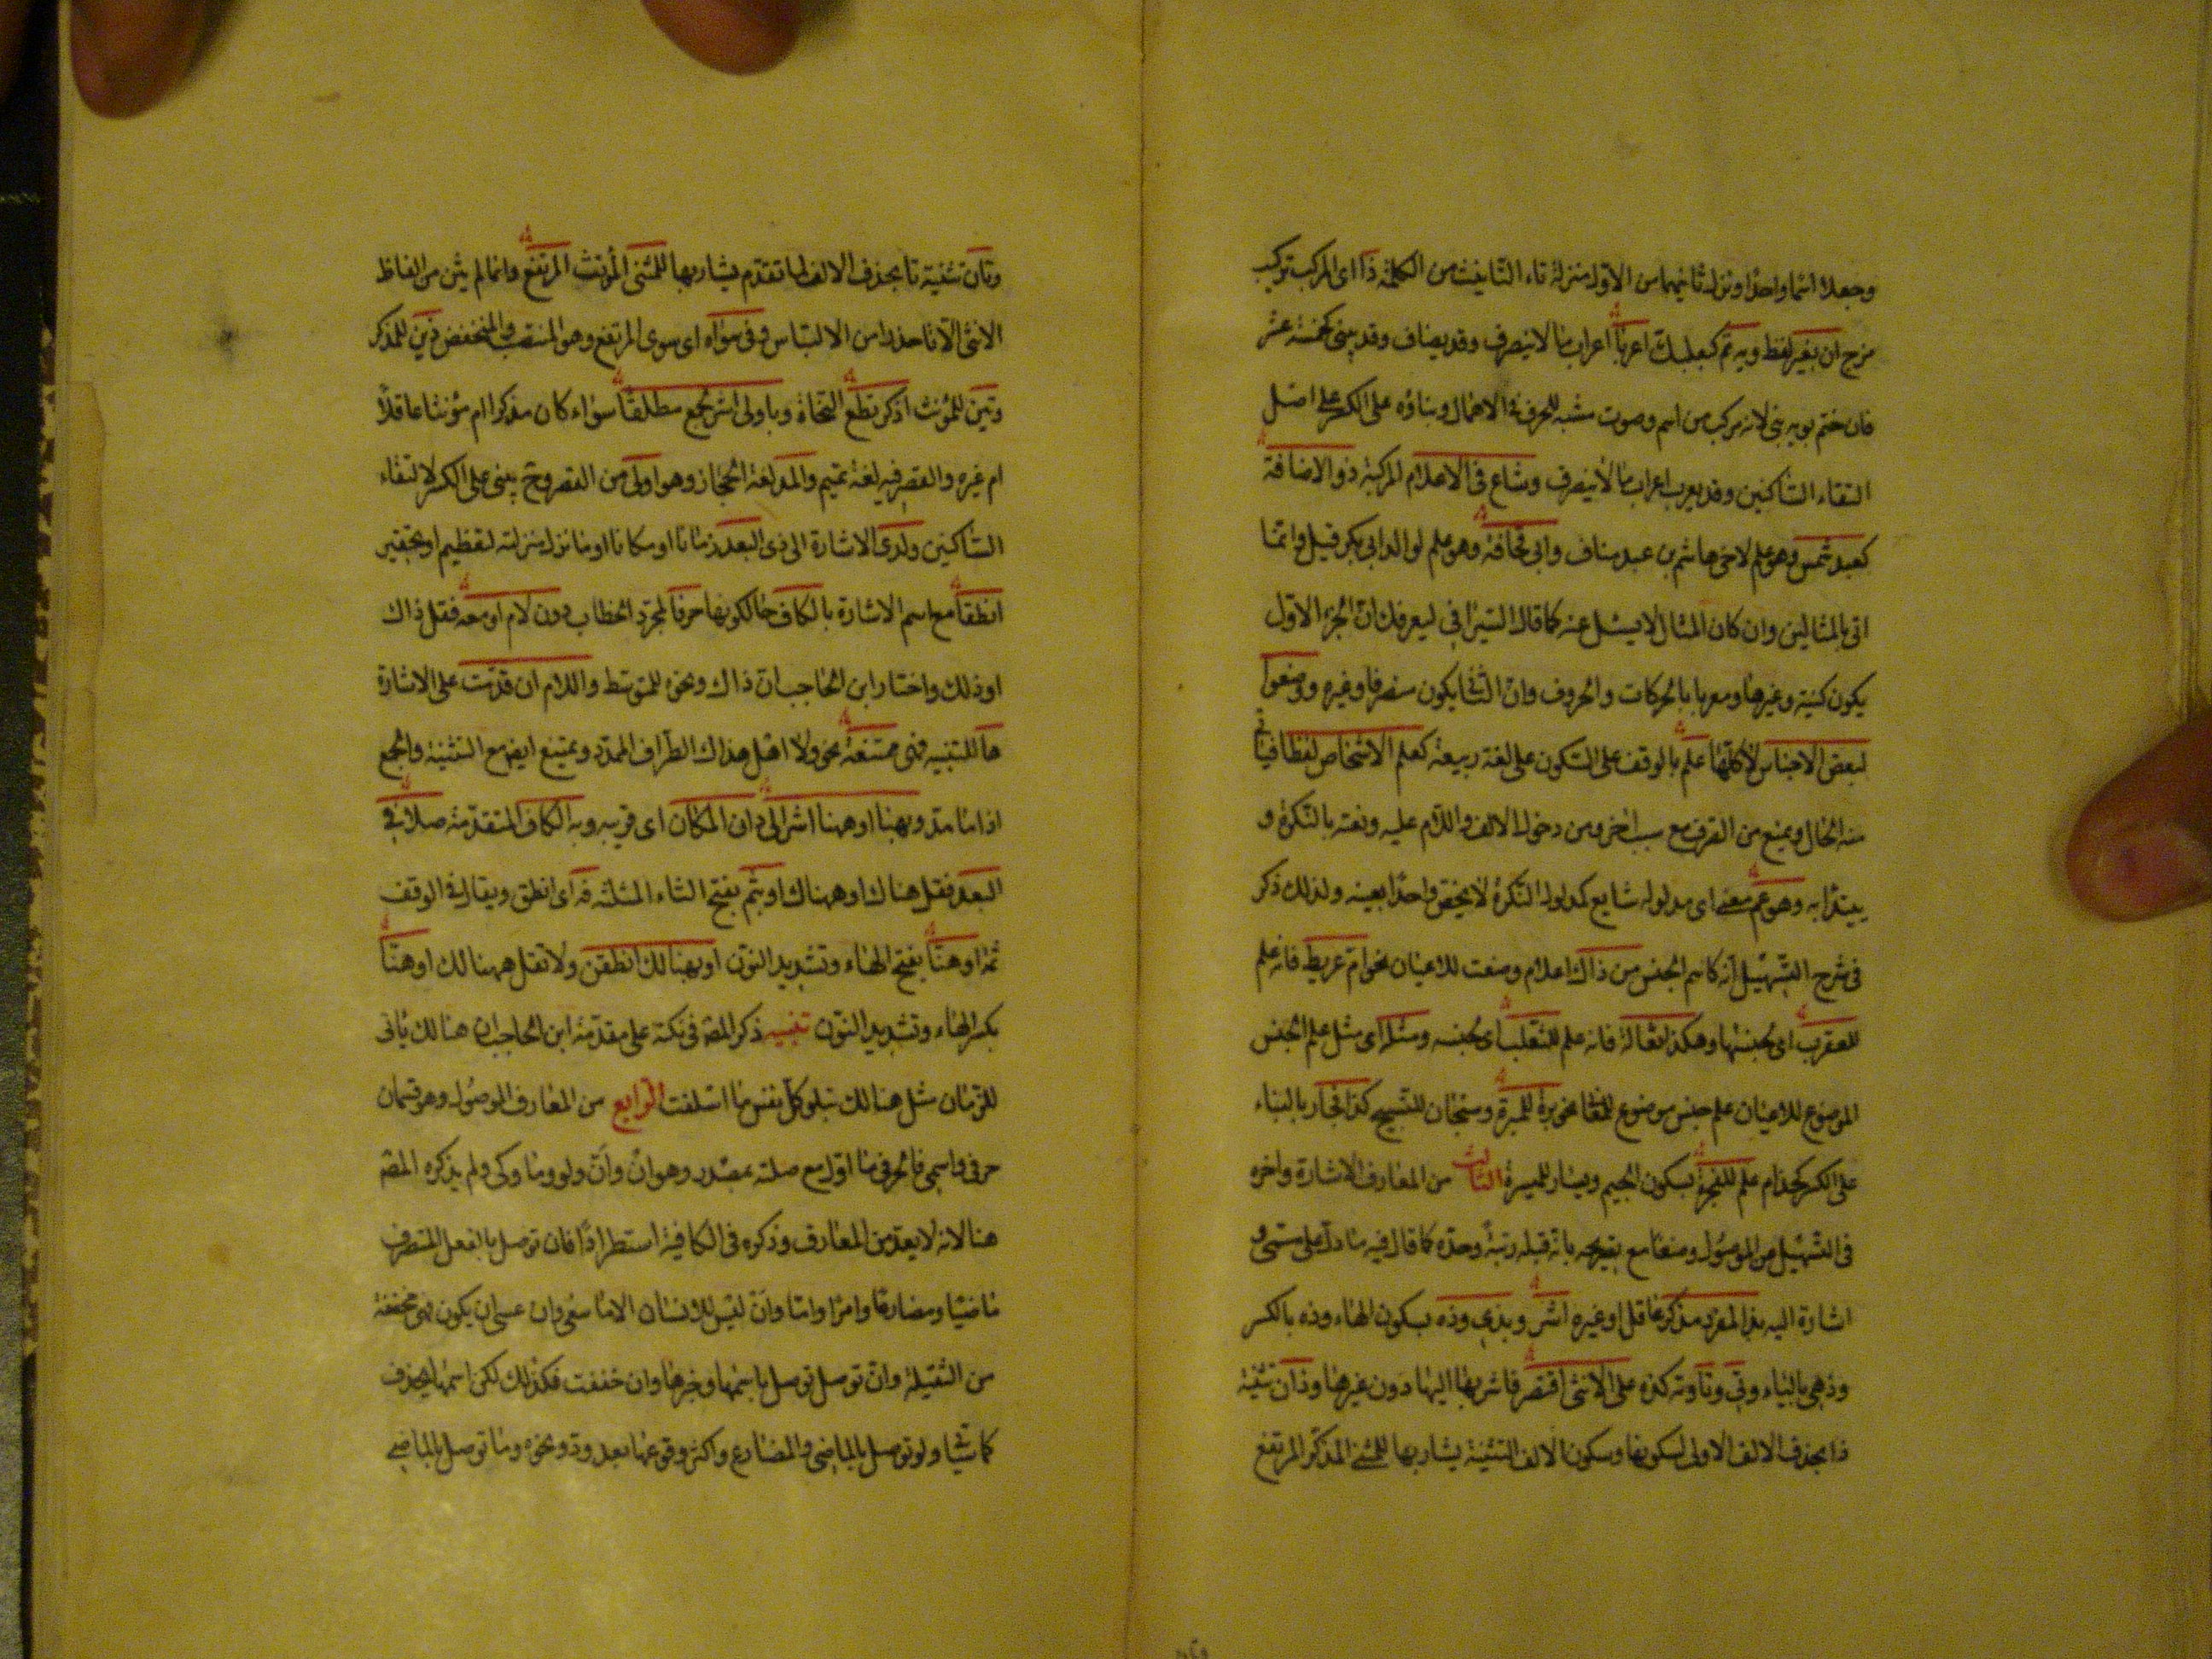 وجعلا اسما واحدا ونزل ثانيهما من الاول منزلة تاء التانيث من الكلمة ذا اى المركب تركيب
مزج ان بغير لفظ ويه تم كبعلبك اعربا اعراب ما لا ينصرف وقد يضاف وقد يبنى كخمسة عشر
فان ختم بويه بنى لانه مركب من اسم وصوت مشبه للحرف فى الاهمال وبناؤه على الكسر على اصل
التقاء الساكنين وقد يعرب اعراب ما لا ينصرف وشاع فى الاعلام المركبة ذو الاضافة
كعبد شمس وهو علم لاخى هاشم بن عبد مناف وابى قحافة وهو علم لوالد ابى بكر قيل وانما
اتى بالمثالين وان كان المثال لا يسئل عنه كما قال السيرافى ليعرفك ان الجزء الاول
يكون كنية وغيرها ومعربا بالحركات والحروف وان الثانى يكون منصرفا وغيره ووضعوا
لبعض الاجناس لا كلها علم بالوقف على السكون على لغة ربيعة كعلم الاشخاص لفظا فياتى
منه الحال ويمنع من الصرف مع سبب اخر ومن دخول الالف واللام عليه ونعته بالنكرة و
يبتدا به وهو عم معنى اى مدلوله شايع كمدلول النكرة لا يخص واحدا بعينه ولذلك ذكر
فى شرح التسهيل انه كاسم الجنس من ذاك اعلام وضعت للاعيان نحو ام عريط فانه علم
للعقرب اى لجنسها وهكذا ثعالة فانه علم للثعلب اى لجنسه ومثله اى مثل علم الجنس
الموضوع للاعيان علم جنس موضوع للمعانى نحو برة للمبرة وسبحان للتسبيح كذا فجار بالبناء
على الكسر كحذام علم للفجرة بسكون الجيم ويسار للميسرة الثالث من المعارف الاشارة واخره
فى التسهيل عن الموصول وضعا مع تصريحه بانه قبله رتبة وحده كما قال فيه ما دل على مسمى و
اشارة اليه بذا لمفرد مذكر عاقل او غيره اشر وبذى وذه بسكون الهاء وذه بالكسر
وذهى بالياء وتى وتا وته كذه على الانثى اقتصر فاشر بها اليها دون غيرها وذان تثنية
ذا بحذف الالف الاولى لسكونها وسكون الالف التثنية يشار بها للمثنى المذكر المرتفع
وتان
وتان تثنية تا بحذف الالف لما تقدم يشار بها للمثنى المؤنث المرتفع وانما لم يثن من الفاظ
الانثى الا تا حذرا من الالتباس وفى سواه اى سوى المرتفع وهو المنتصب والمنخفض ذين للمذكر
وتين للمؤنث اذكر تطع النحاة وباولى اشر لجمع مطلقا سواء كان مذكرا ام مؤنثا عاقلا
ام غيره والقصر فيه لغة تميم والمد لغة الحجاز وهو اولى من القصر وح يبنى على الكسر لالتقاء
الساكنين ولدى الاشارة الى ذى البعد زمانا او مكانا او ما نزل منزلته لتعظيم او تحقير
انطقا مع اسم الاشارة بالكاف حالكونها حرفا لمجرد الخطاب دون لام او معه فقل ذاك
او ذلك واختار ابن الحاجب ان ذاك ونحوه للمتوسط واللام ان قدمت على الاشارة
ها للتنبيه فهى ممتنعة نحو ولا اهل هذاك الطراف الممدد ويمتنع ايضا مع التثنية والجمع
اذا ما مد وبهنا او ههنا اشر الى دانى المكان اى قريبه وبه الكاف المتقدمة صلا فى
البعد فقل هناك او ههناك او بثم بفتح الثاء المثلثة فه اى انطق ويقال فى الوقف
ثمه او هنا بفتح الهاء وتشديد النون او بهنالك انطقن ولا تقل ههنالك او هنا
بكسر الهاء وتشديد النون تنبيه ذكر المص فى نكته على مقدمة ابن الحاجب ان هنالك ياتى
للزمان مثل هنالك تبلو كل نفس ما اسلفت الرابع من المعارف الموصول وهو قسمان
حرفى واسمى فالحرفى ما اول مع صلته بمصدر وهو ان وان ولو وما وكى ولم يذكره المص
هنا لانه لا يعد من المعارف وذكره فى الكافية استطرادا فان توصل بالفعل المتصرف
ماضيا ومضارعا وامرا واما وان ليس للانسان الا ما سعى وان عسى ان يكون فهى مخففة
من الثقيلة وان توصل توصل باسمها وخبرها وان خففت فكذلك لكن اسمها يحذف
كما سياتى ولو توصل بالماضى والمضارع واكثر وقوعها بعد ود ونحوه وما توصل بالماضى